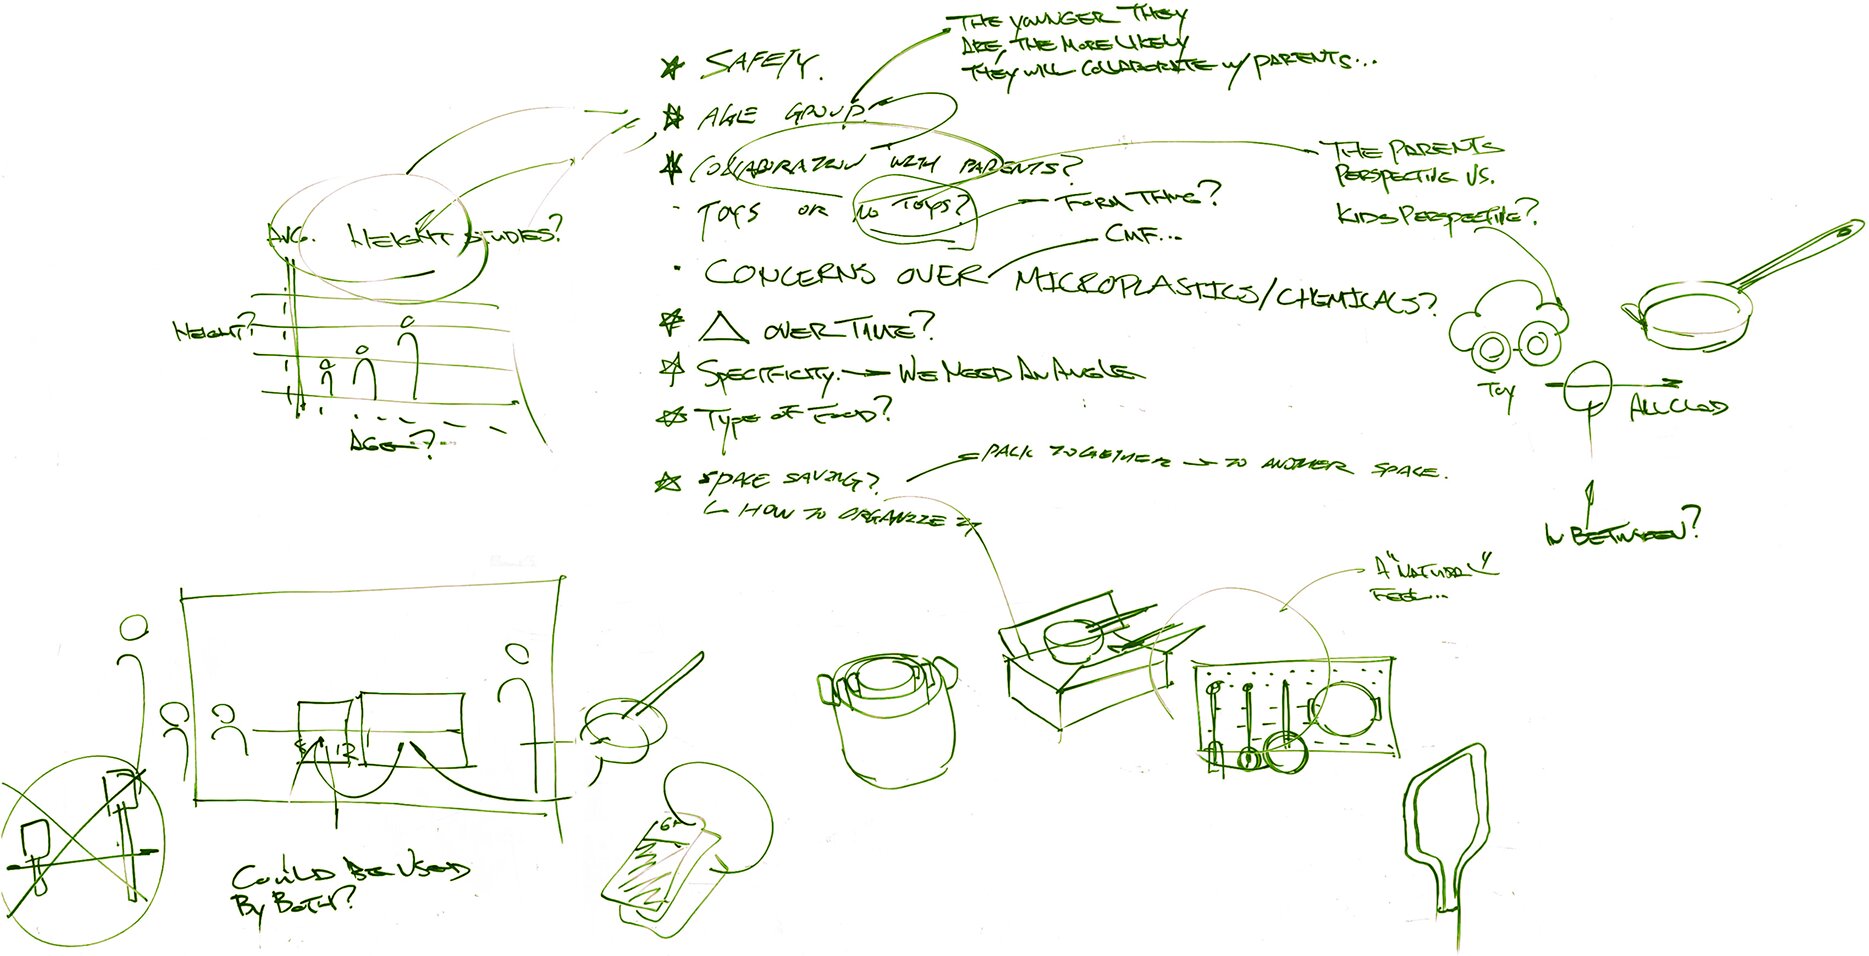 THE YOUNGER THEY
ARE, THE MORE LIKELY
THEY WILL COLLABORATE W/ PARENTS...
SAFETY.
AGE GROUP.
COLLABORATION WITH PARENTS?
TOYS OR NO TOYS?
FORM THING?
CMF...
CONCERNS OVER MICROPLASTICS/CHEMICALS?
△ OVER TIME?
SPECIFICITY. → WE NEED AN ANGLE
TYPE OF FOOD?
SPACE SAVING?
PACK TOGETHER → TO ANOTHER SPACE.
HOW TO ORGANIZE
THE PARENTS
PERSPECTIVE VS.
KIDS PERSPECTIVE?
TOY
ALLCLAD
IN BETWEEN?
AVG. HEIGHT STUDIES?
HEIGHT?
AGE?
A "NATURAL"
FEEL...
12
COULD BE USED
BY BOTH?